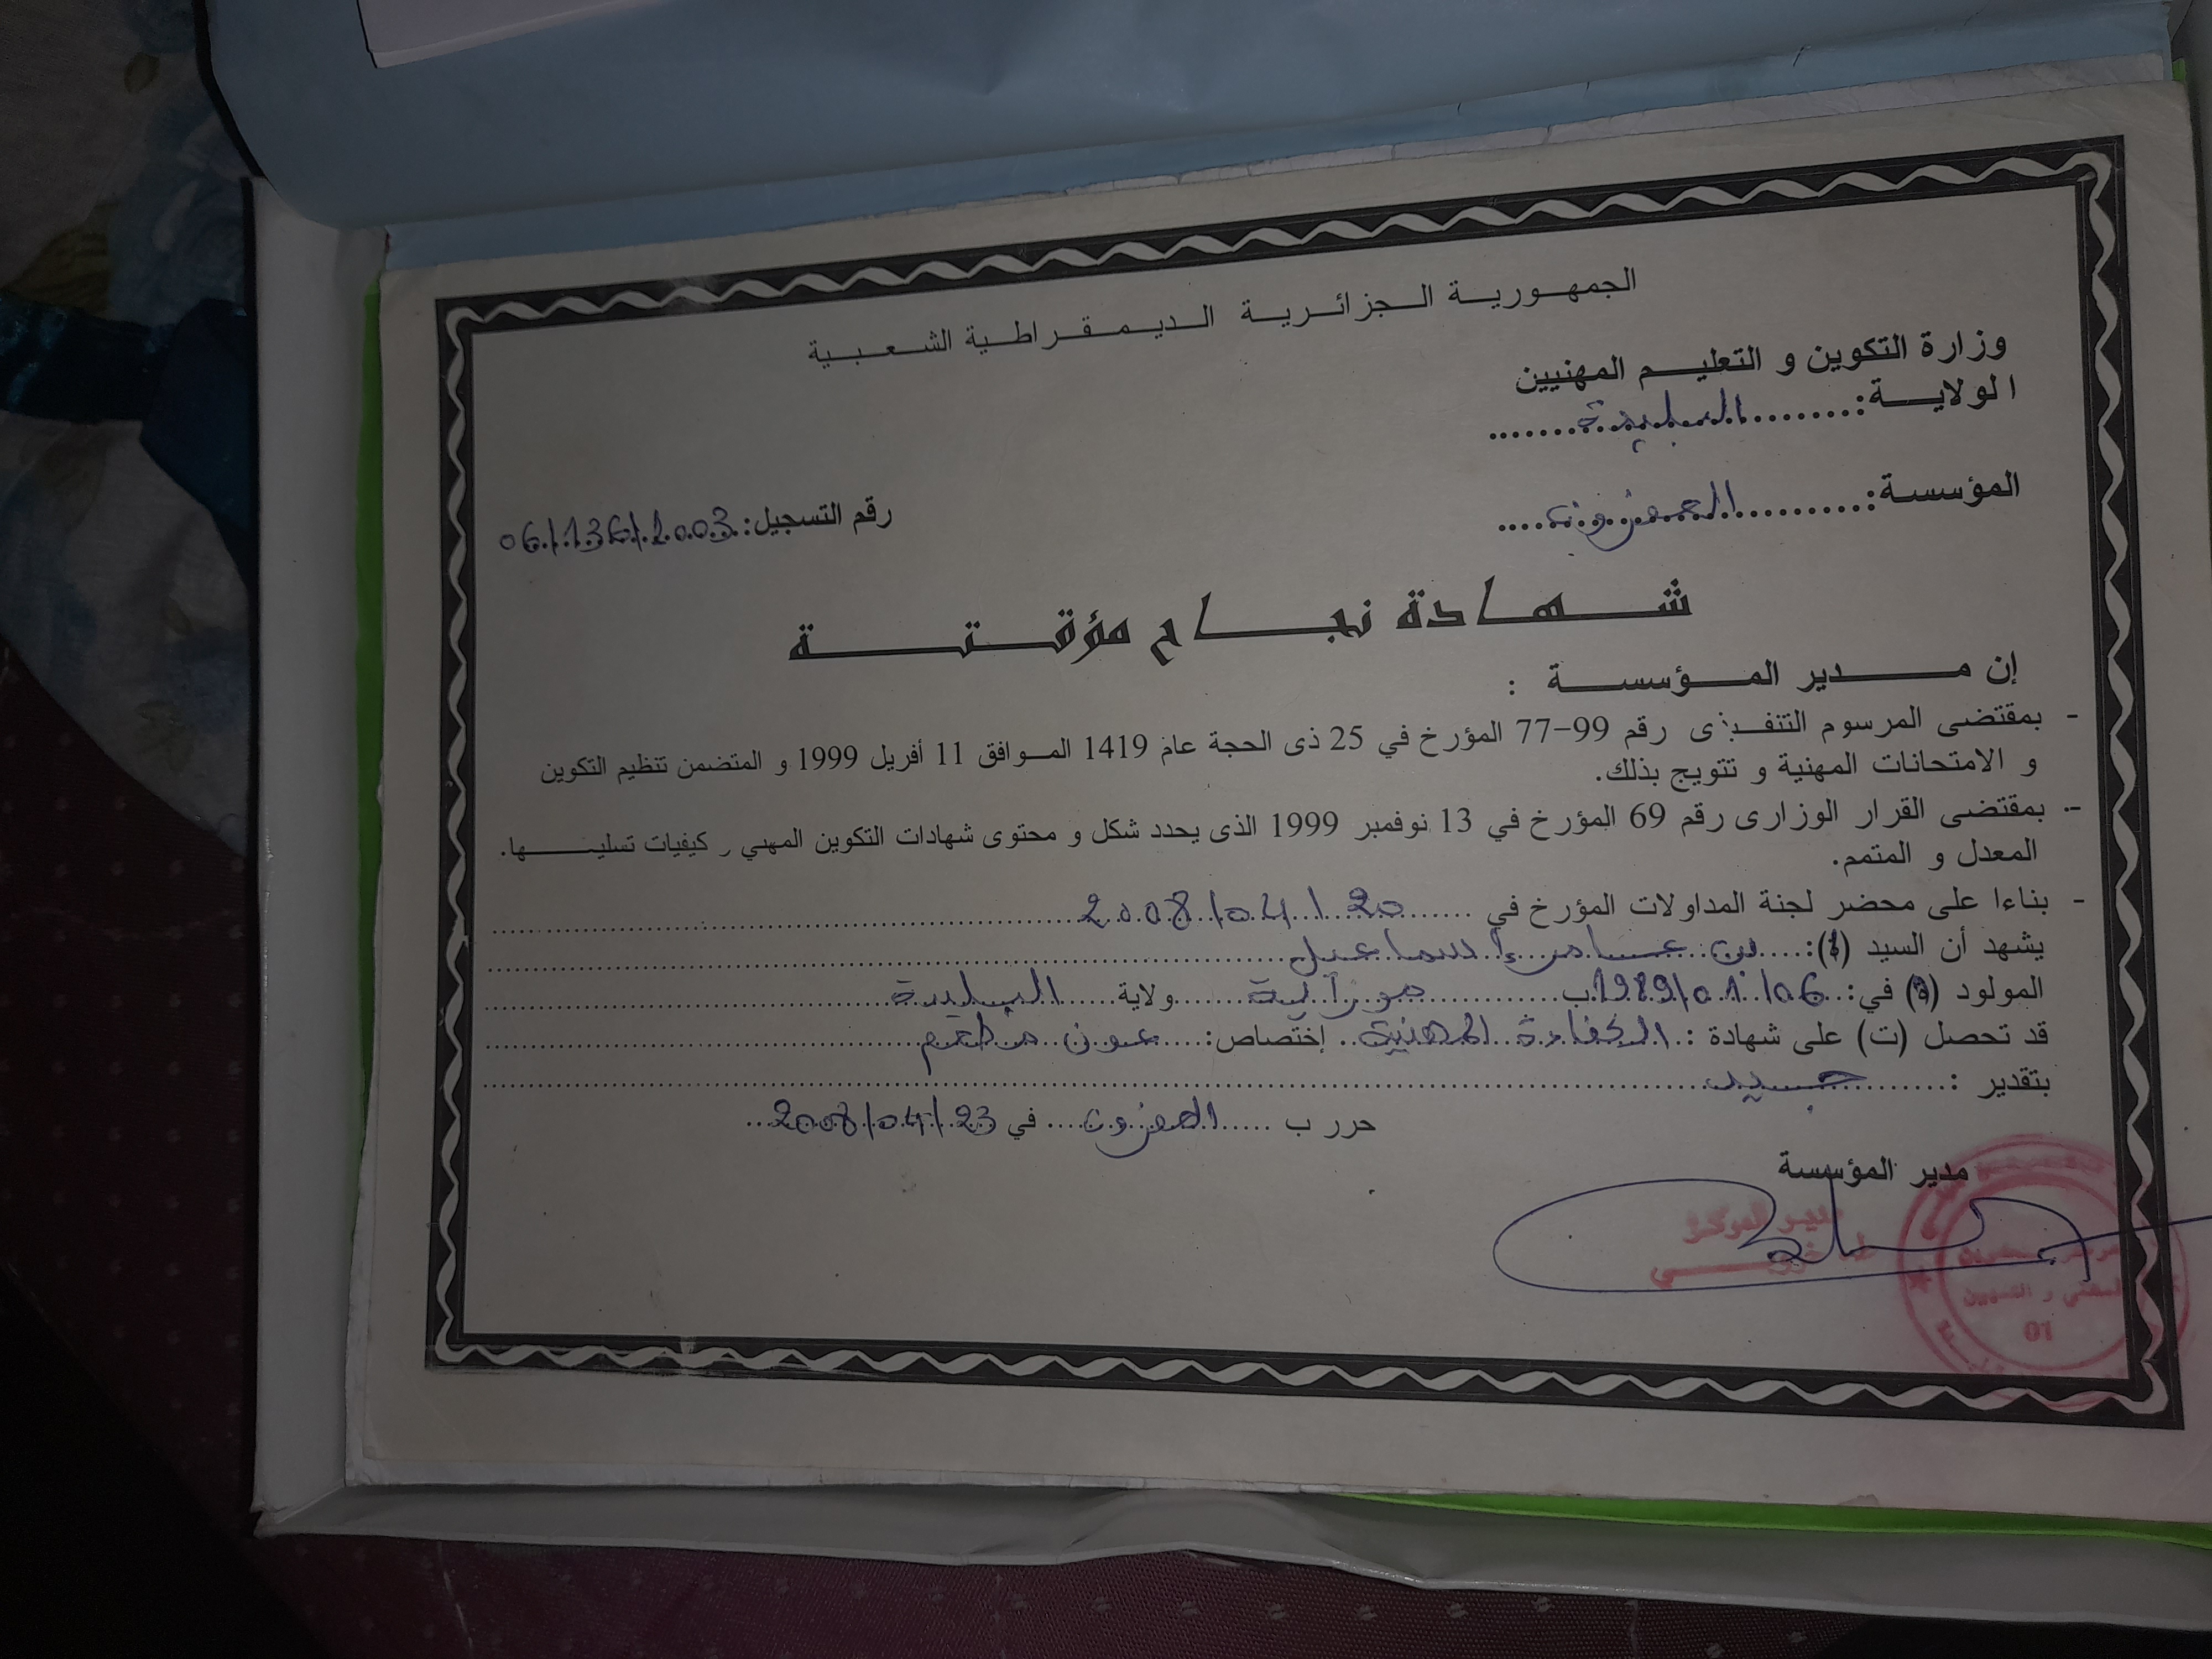 الجمهورية الجزائرية الديمقراطية الشعبية
وزارة التكوين و التعليم المهنيين
الولاية: البليدة
المؤسسة: العفرون
رقم التسجيل: 06/136/1003
شهادة نجاح مؤقتة
إن مدير المؤسسة :
- بمقتضى المرسوم التنفيذى رقم 99-77 المؤرخ في 25 ذى الحجة عام 1419 الموافق 11 أفريل 1999 و المتضمن تنظيم التكوين
و الامتحانات المهنية و تتويج بذلك.
- بمقتضى القرار الوزارى رقم 69 المؤرخ في 13 نوفمبر 1999 الذى يحدد شكل و محتوى شهادات التكوين المهني و كيفيات تسليمها.
المعدل و المتمم.
- بناءا على محضر لجنة المداولات المؤرخ في 20/04/2008
يشهد أن السيد (ة): بن عامر اسماعيل
المولود (ة) في: 06/01/1989 ب موزاية ولاية البليدة
قد تحصل (ت) على شهادة : الكفاءة المهنية إختصاص: عون مطعم
بتقدير : جيد
حرر ب العفرون في 23/04/2008
مدير المؤسسة
مدير المركز
01